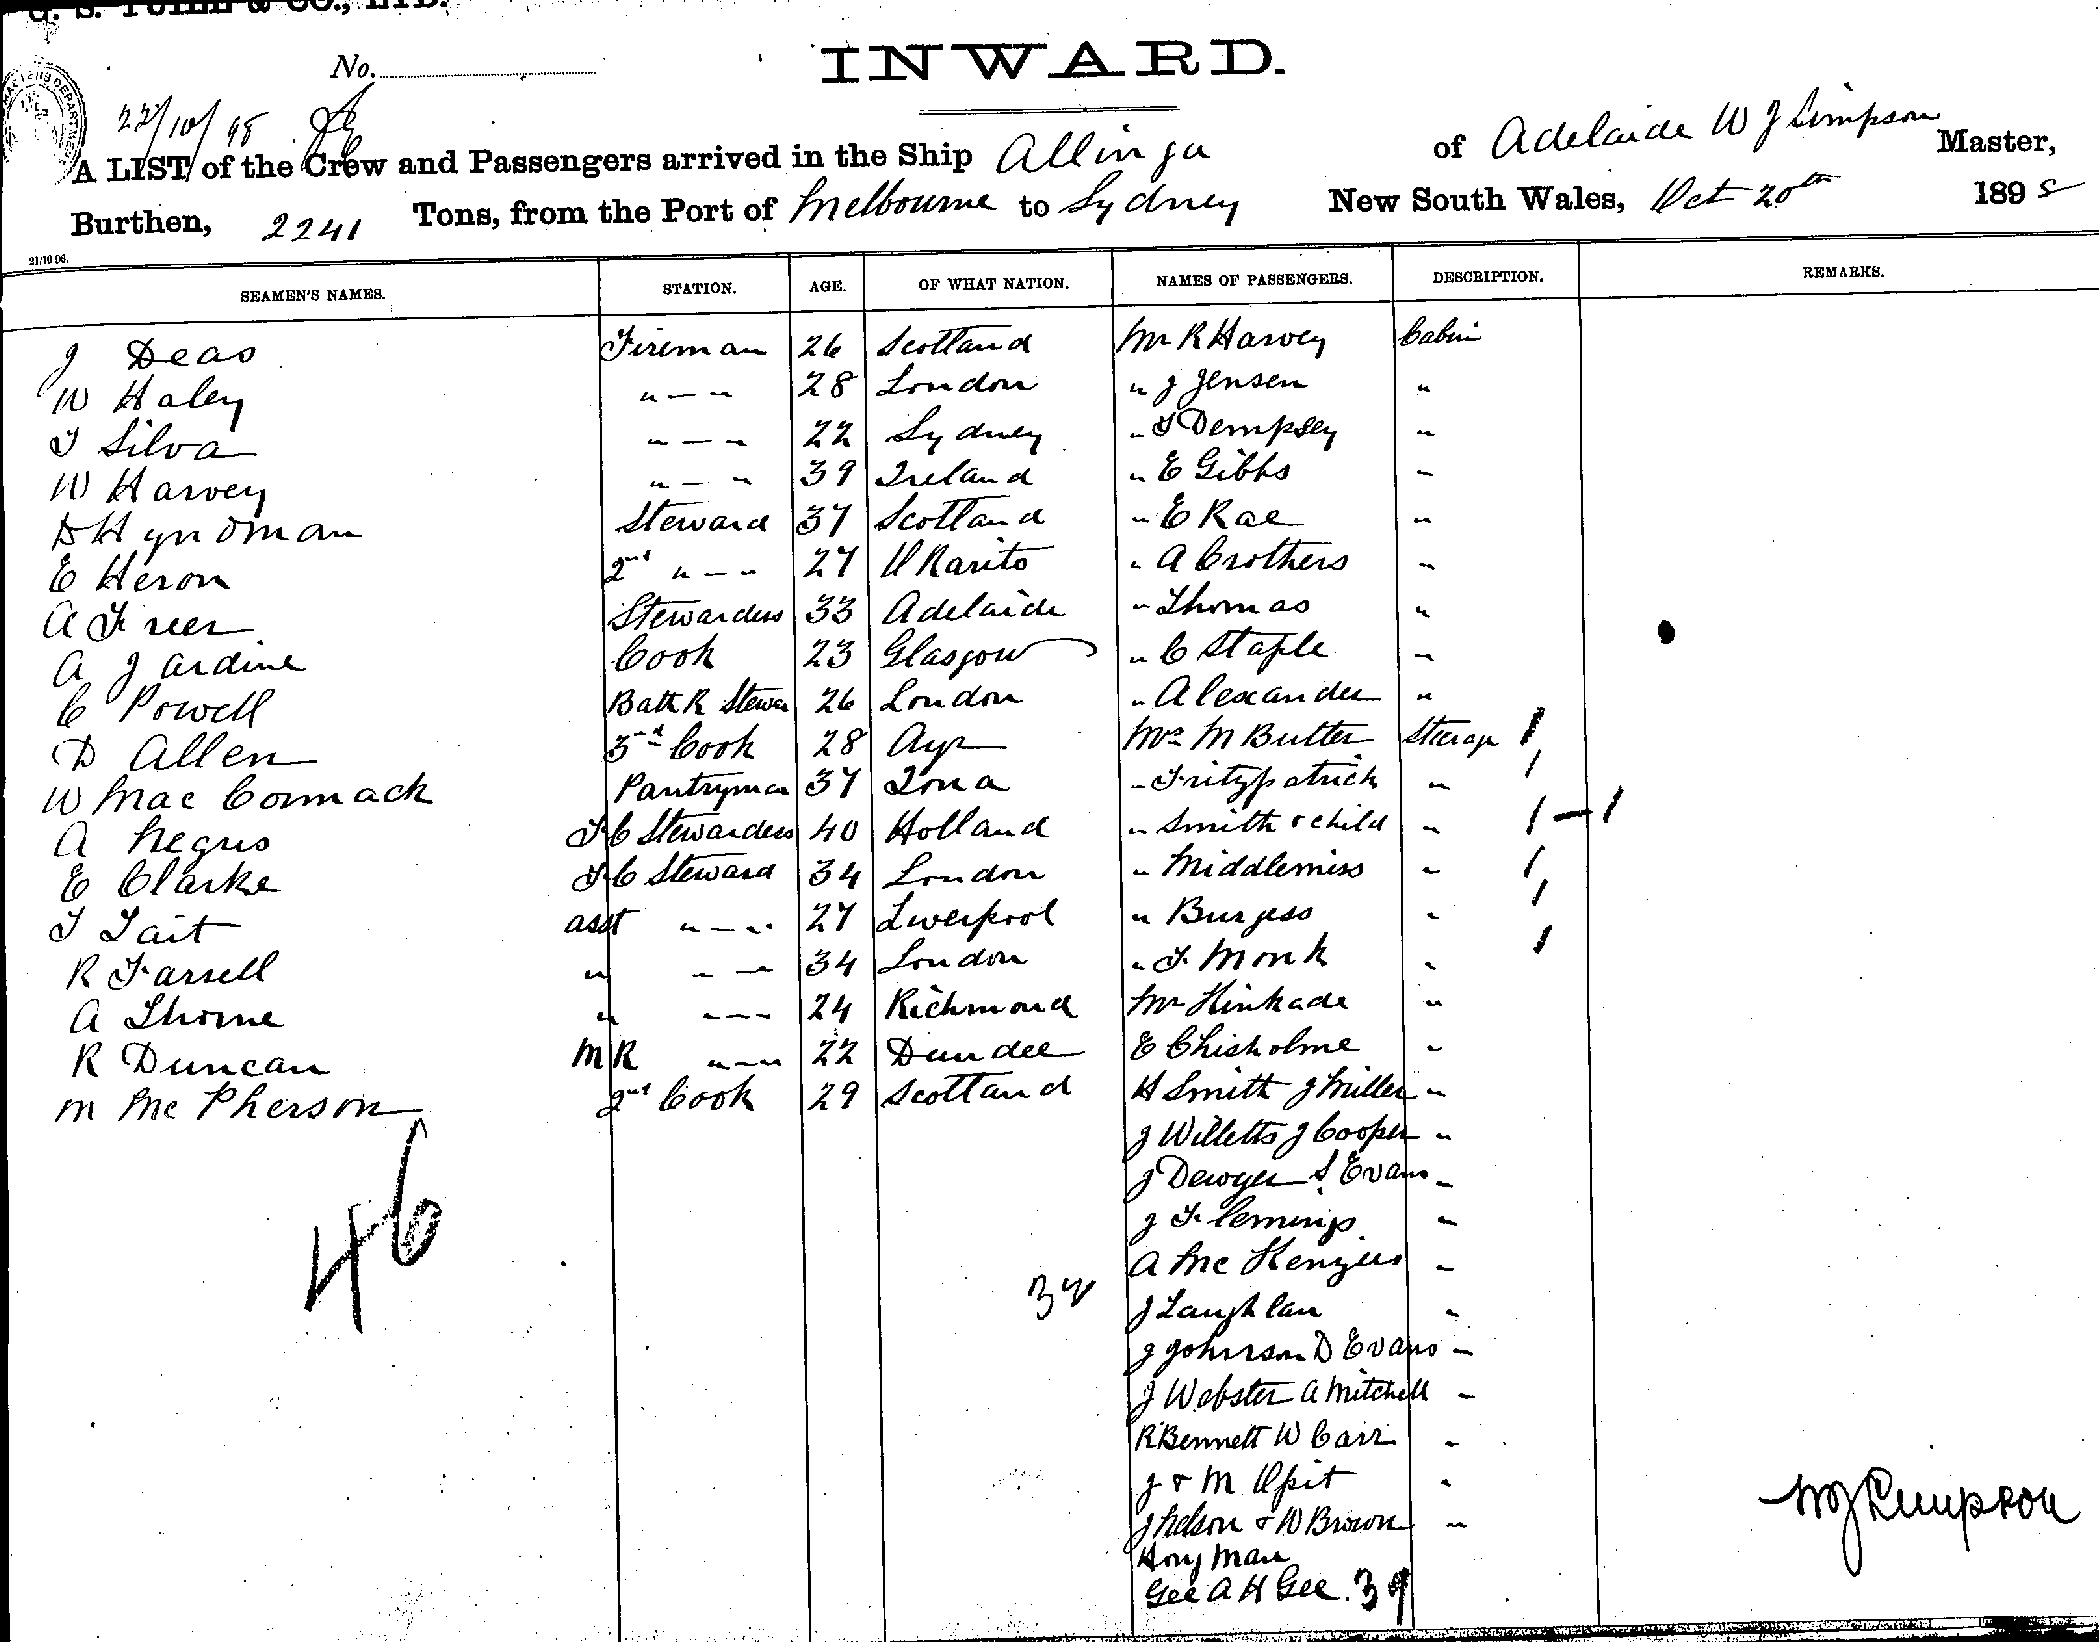 No.
INWARD.
22/10/98
A LIST of the Crew and Passengers arrived in the Ship Allinga of Adelaide W J Simpson Master,
Burthen, 2241 Tons, from the Port of Melbourne to Sydney New South Wales, Oct 20th 1898
21/10 96.
SEAMEN'S NAMES. STATION. AGE. OF WHAT NATION. NAMES OF PASSENGERS. DESCRIPTION. REMARKS.
J Deas Fireman 26 Scotland Mr R Harvey Cabin
W Haley " — " 28 London " J Jensen "
T Silva " — " 22 Sydney " T Dempsey "
W Harvey " — " 39 Ireland " E Gibbs "
D Hyndman Steward 37 Scotland " E Rae "
E Heron 2nd " — " 27 " A Crothers "
A Freer Stewardess 33 Adelaide " Thomas "
A Jardine Cook 23 Glasgow " C Staple "
C Powell Bath R Stewa 26 London " Alexander "
D Allen 3rd Cook 28 Ayr Mrs M Butler Steerage 1
W Mac Cormack Pantryman 37 Iona " Fritzpatrick " 1
A Negus F C Stewardess 40 Holland " Smith & child " 1 — 1
E Clarke F C Steward 34 London " Middlemiss " 1
T Tait asst " — " 27 Liverpool " Burgess " 1
R Farrell " " — 34 London " F Monk " 1
A Thorne " " — " 24 Richmond Mr Kinkade "
R Duncan M R " — " 22 Dundee E Chisholme "
M Mc Pherson 2nd Cook 29 Scotland H Smith J Miller "
J Willetts J Cooper "
J Dewyer S Evans "
J Flemings "
A Mc Kenzies "
J Laughlan "
J Johnson D Evans "
J Webster A Mitchell "
R Bennett W Carr "
J & M Opit "
J Nelson & W Brown "
Hong Man
Gee A H Gee. 39
46
W J Simpson